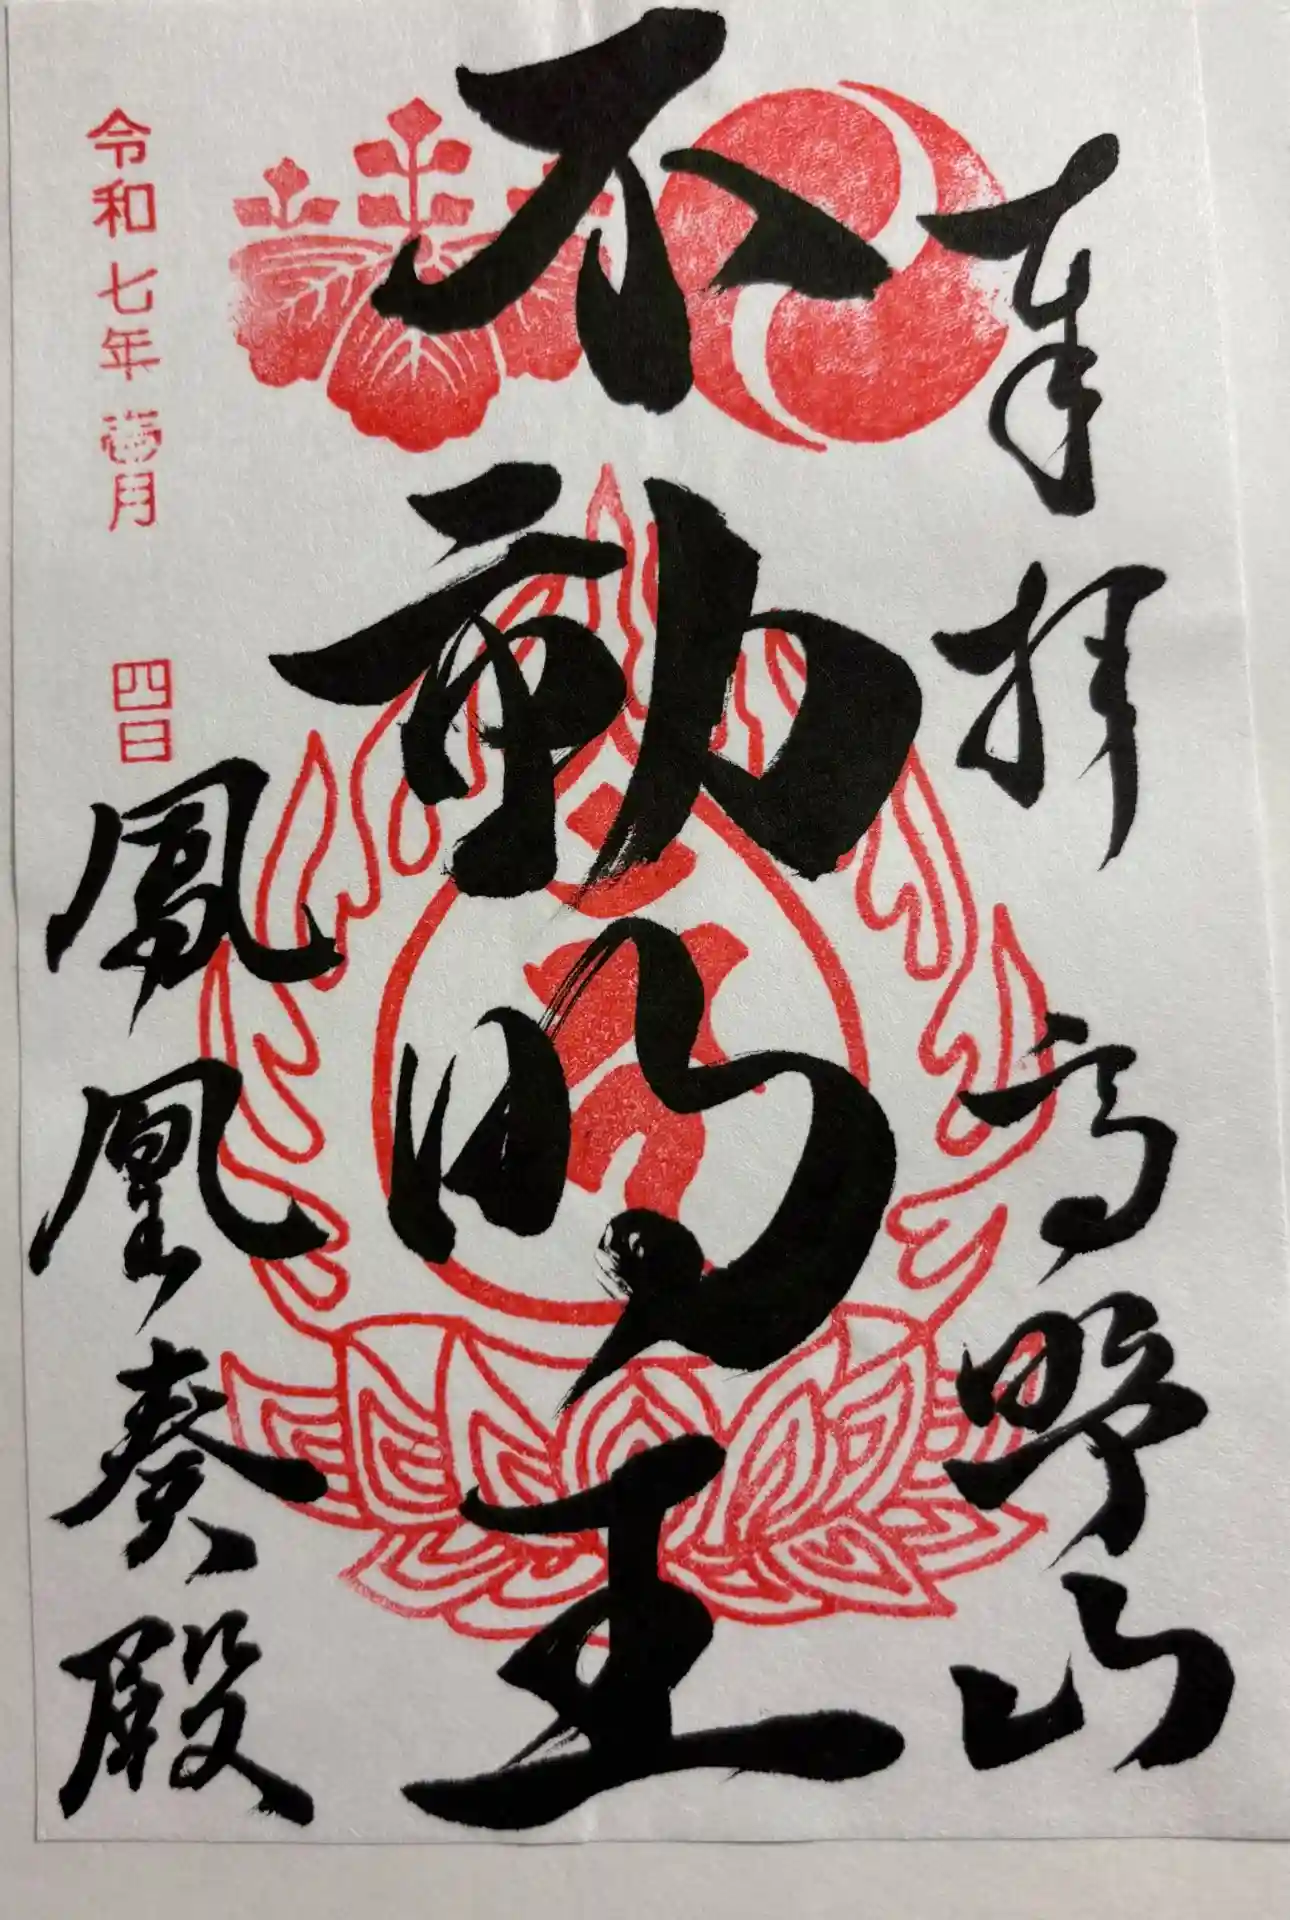 奉拝 高野山
不動明王
令和七年壱月四日
鳳凰奏殿